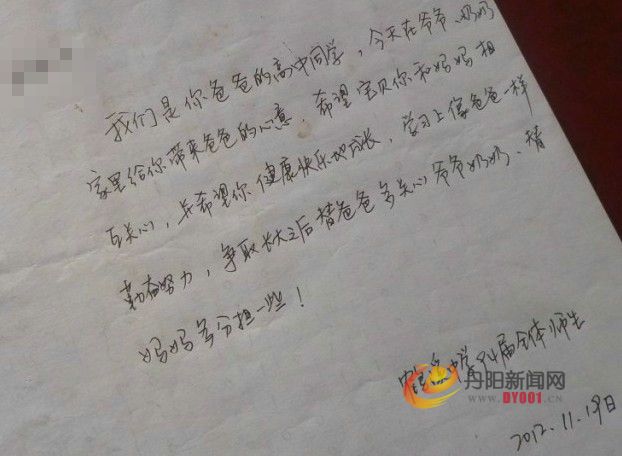 我们是你爸爸的高中同学，今天在爷爷、奶奶
家里给你带来爸爸的心意，希望宝贝你和妈妈相
互关心，并希望你健康快乐地成长，学习上像爸爸一样
勤奋努力，争取长大之后替爸爸多关心爷爷奶奶、替
妈妈多分担一些！
中学84届全体师生
丹阳新闻网
WWW.DY001.CN
2012.11.19日